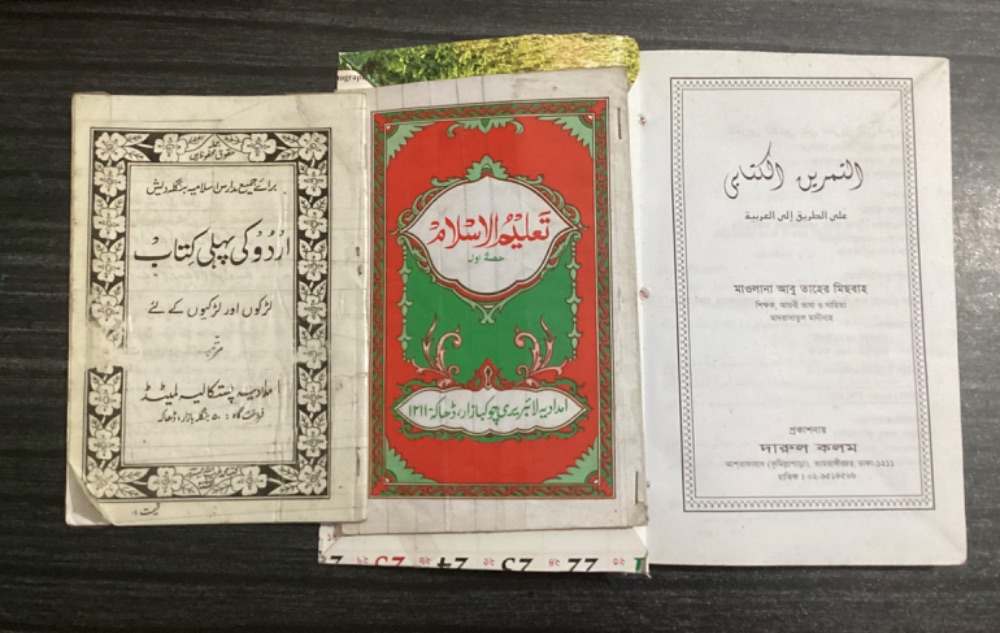 جملہ
حقوق محفوظ ہیں
برائے جمیع مدارس اسلامیہ بنگلہ دیش
اردو کی پہلی کتاب
لڑکوں اور لڑکیوں کے لئے
مرتبہ
امدادیہ پستکالیہ لمیٹڈ
فروخت گاہ : ۵۰ بنگلہ بازار، ڈھاکہ
قیمت :
tograp
تَعلِيمُ الاِسْلَام
حصہ اول
امدادیہ لائبریری چوکبازار، ڈھاکہ-۱۲۱۱
التمرين الكتابي
على الطريق إلى العربية
মাওলানা আবু তাহের মিছবাহ
শিক্ষক, আরবী ভাষা ও সাহিত্য
মাদরাসাতুল মাদীনাহ
প্রকাশনায়
দারুল কলম
আশরাফাবাদ (কুমিল্লাপাড়া), কামরাঙ্গীরচর, ঢাকা-১২১১
25 24 23 22